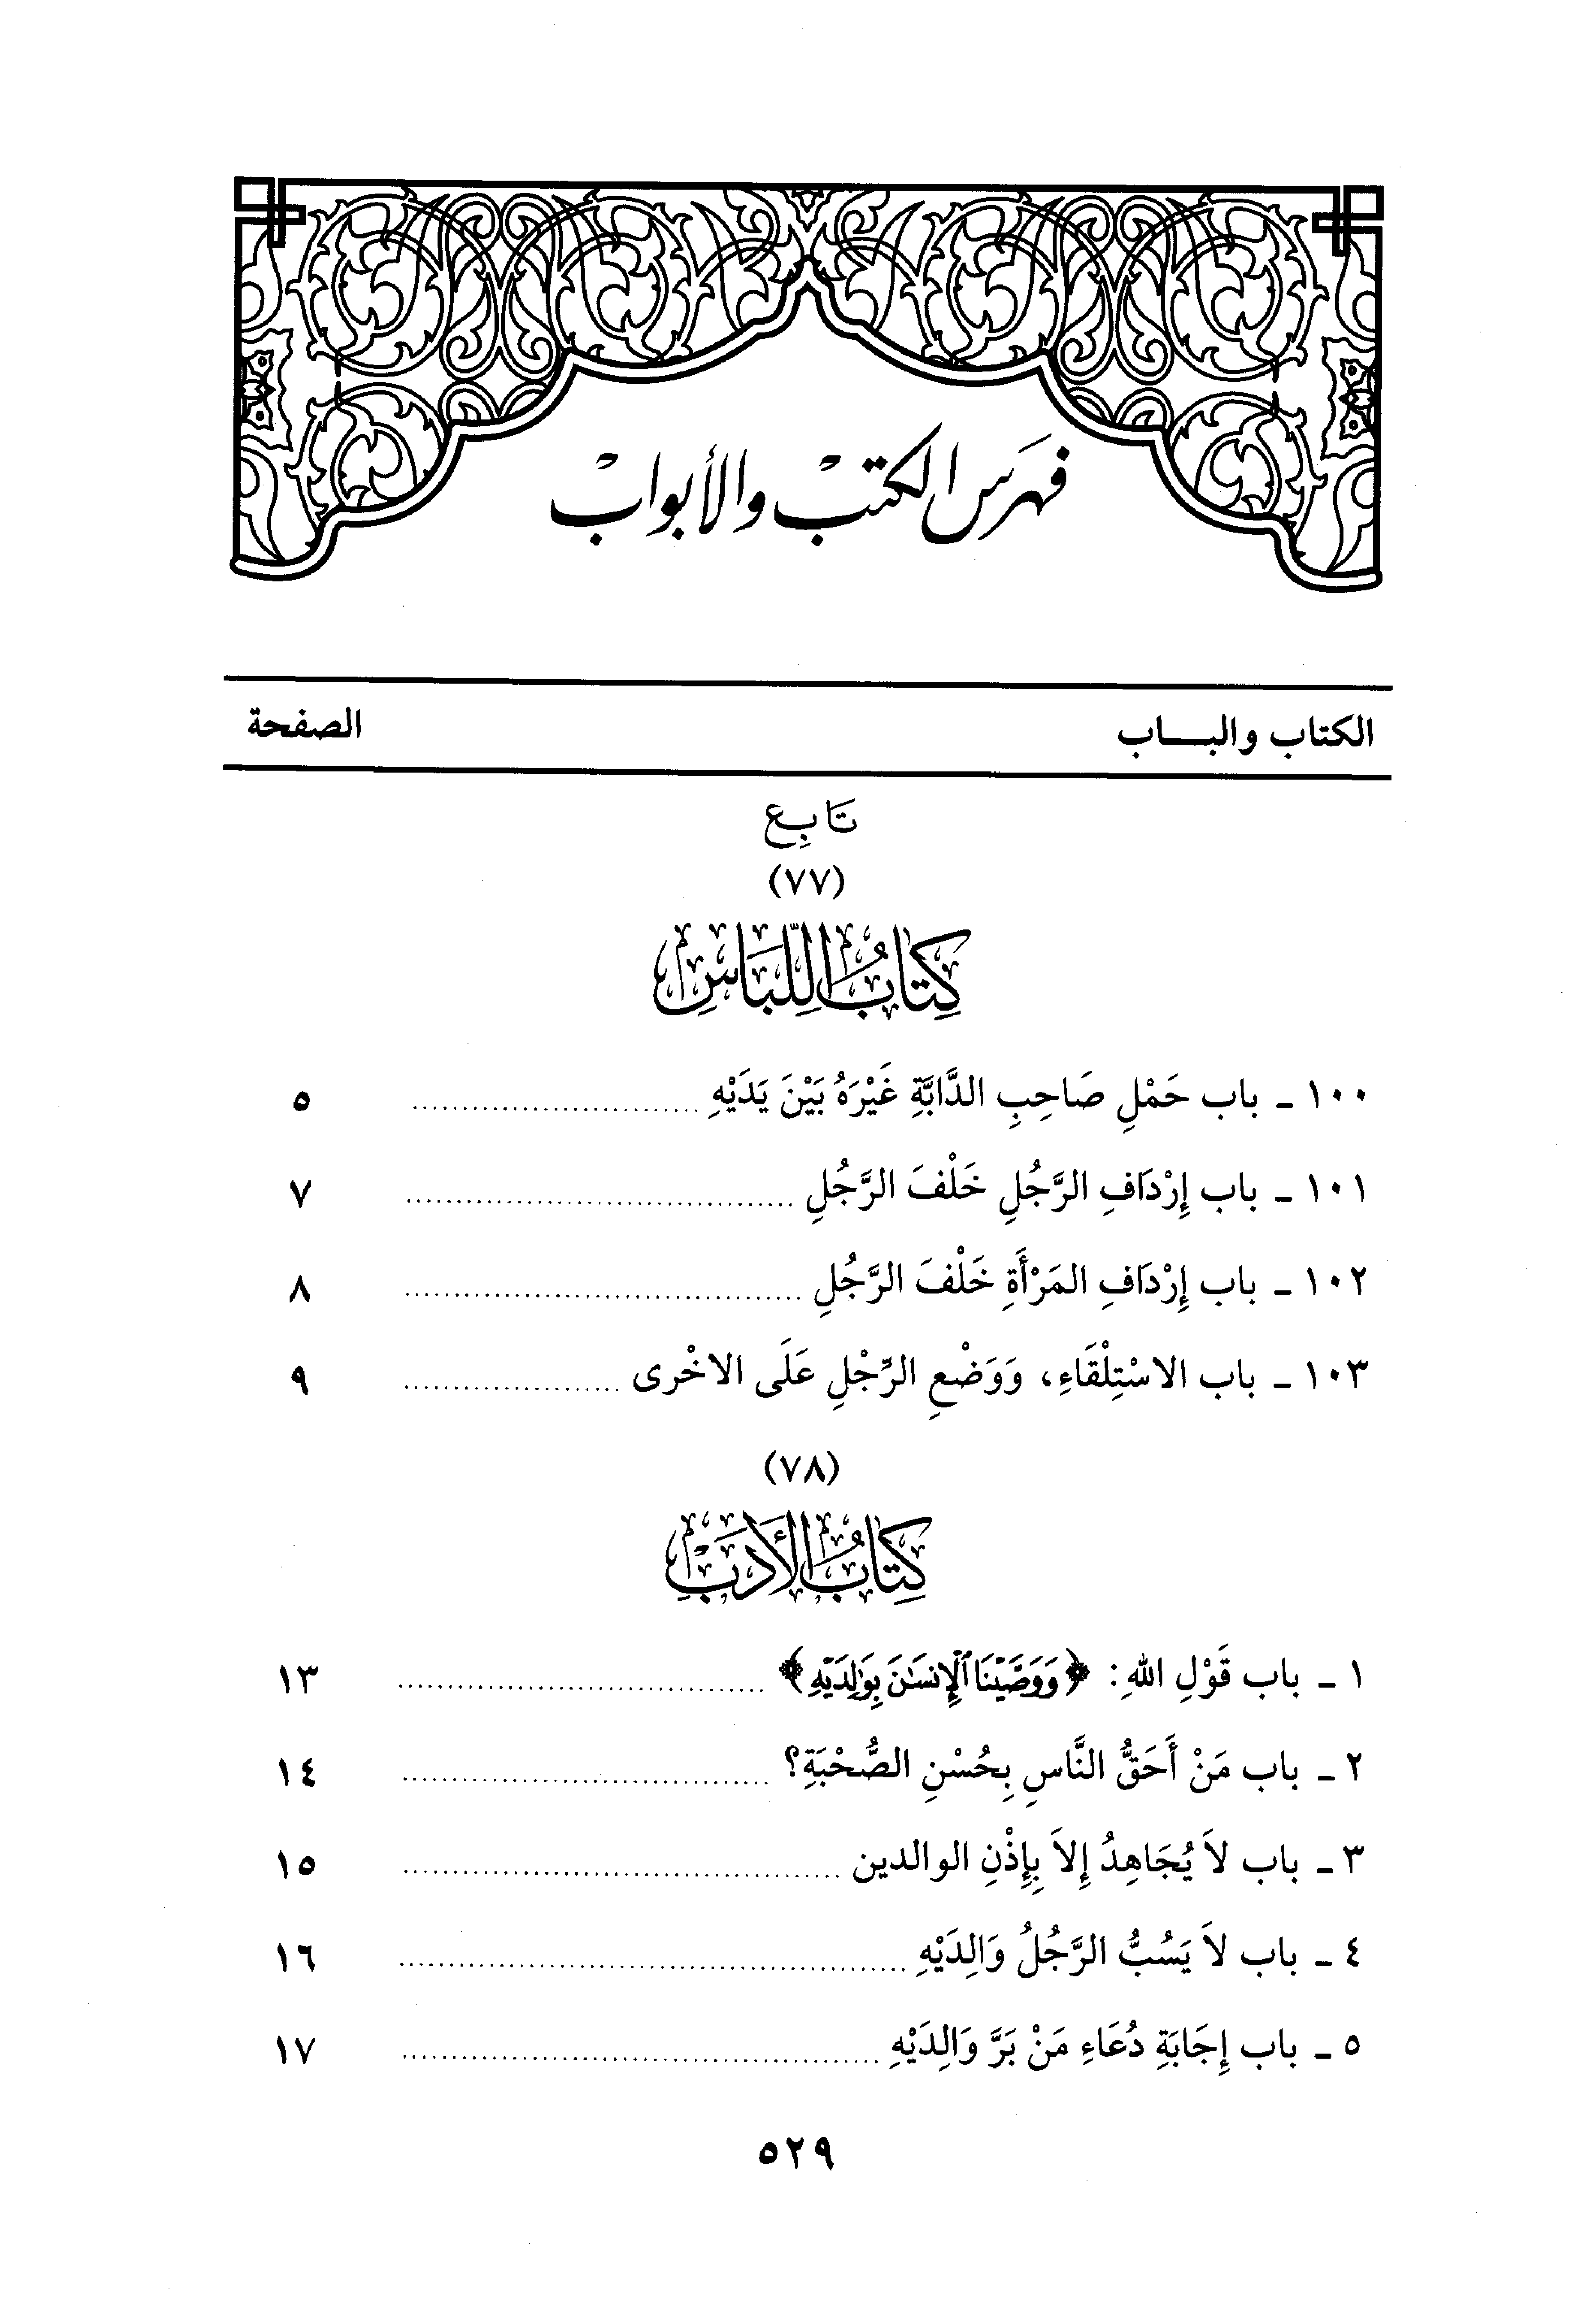 فهرس الكتب والأبواب
الكتاب والبـــاب الصفحة
تَابِع
(٧٧)
كِتَابُ اللِّبَاسِ
١٠٠ ـ باب حَمْلِ صَاحِبِ الدَّابَّةِ غَيْرَهُ بَيْنَ يَدَيْهِ ........ ٥
١٠١ ـ باب إِرْدَافِ الرَّجُلِ خَلْفَ الرَّجُلِ ........ ٧
١٠٢ ـ باب إِرْدَافِ المَرْأَةِ خَلْفَ الرَّجُلِ ........ ٨
١٠٣ ـ باب الاسْتِلْقَاءِ، وَوَضْعِ الرِّجْلِ عَلَى الاخْرى ........ ٩
(٧٨)
كِتَابُ الأَدَبِ
١ ـ باب قَوْلِ اللهِ: ﴿وَوَصَّيْنَا ٱلْإِنسَٰنَ بِوَٰلِدَيْهِ﴾ ........ ١٣
٢ ـ باب مَنْ أَحَقُّ النَّاسِ بِحُسْنِ الصُّحْبَةِ؟ ........ ١٤
٣ ـ باب لاَ يُجَاهِدُ إِلاَ بِإِذْنِ الوالدين ........ ١٥
٤ ـ باب لاَ يَسُبُّ الرَّجُلُ وَالِدَيْهِ ........ ١٦
٥ ـ باب إِجَابَةِ دُعَاءِ مَنْ بَرَّ وَالِدَيْهِ ........ ١٧
٥٢٩